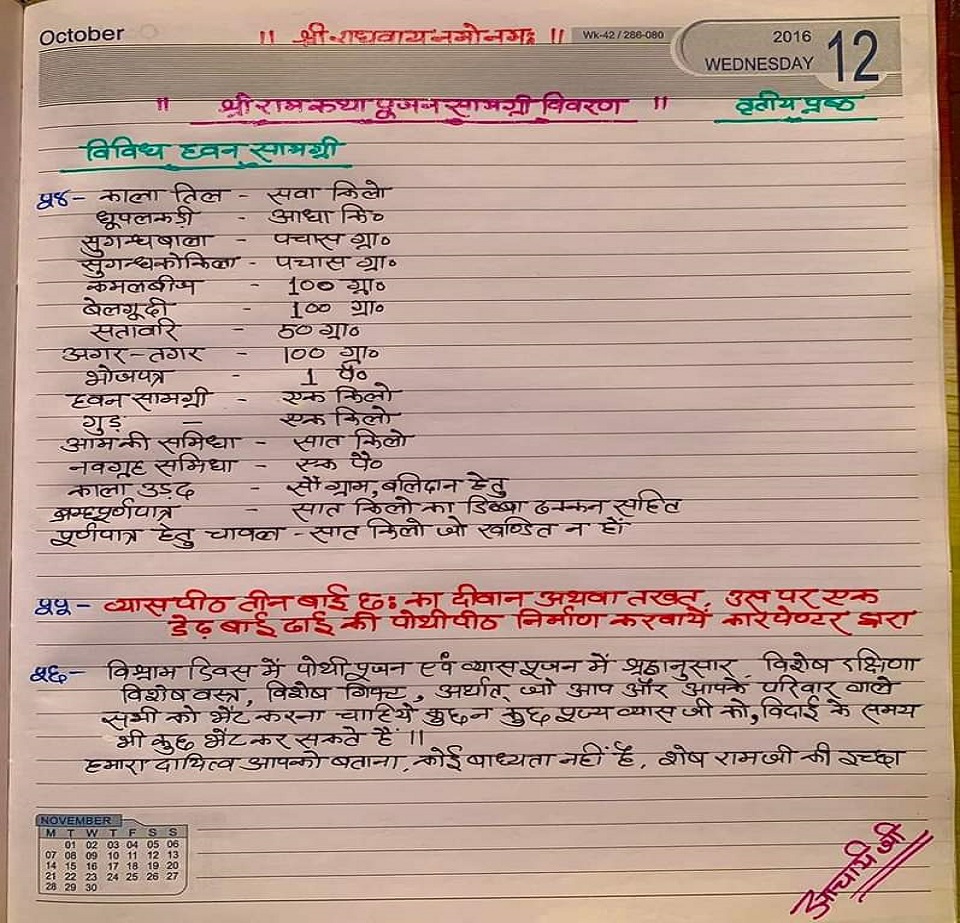 October
॥ श्री राघवाय नमोनमः ॥
Wk-42 / 286-080
2016
WEDNESDAY
12
॥ श्रीरामकथा पूजन सामग्री विवरण ॥ तृतीय पृष्ठ
विविध हवन सामग्री
५४- काला तिल - सवा किलो
धूपलकड़ी - आधा कि०
सुगन्धबाला - पचास ग्रा०
सुगन्धकोकिला - पचास ग्रा०
कमलबीज - 100 ग्रा०
बेलगूदी - 100 ग्रा०
सतावरि - 50 ग्रा०
अगर-तगर - 100 ग्रा०
भोजपत्र - 1 पै०
हवन सामग्री - एक किलो
गुड़ - एक किलो
आमकी समिधा - सात किलो
नवग्रह समिधा - एक पै०
काला उड़द - सौ ग्राम, बलिदान हेतु
ब्रम्हपूर्णपात्र - सात किलो का डिब्बा ढक्कन सहित
पूर्णपात्र हेतु चावल - सात किलो जो खण्डित न हों
५५- व्यासपीठ तीन बाई छः का दीवान अथवा तखत, उस पर एक
डेढ़ बाई ढाई की पोथीपीठ निर्माण करवायें कारपेण्टर द्वारा
५६- विश्राम दिवस में पोथीपूजन एवं व्यासपूजन में श्रद्धानुसार, विशेष दक्षिणा
विशेष वस्त्र, विशेष गिफ्ट, अर्थात् जो आप और आपके परिवार वाले
सभी को भेंट करना चाहिये कुछ न कुछ पूज्य व्यास जी को, विदाई के समय
भी कुछ भेंट कर सकते हैं ॥
हमारा दायित्व आपको बताना, कोई बाध्यता नहीं है, शेष रामजी की इच्छा
आचार्य श्री
NOVEMBER
M T W T F S S
01 02 03 04 05 06
07 08 09 10 11 12 13
14 15 16 17 18 19 20
21 22 23 24 25 26 27
28 29 30